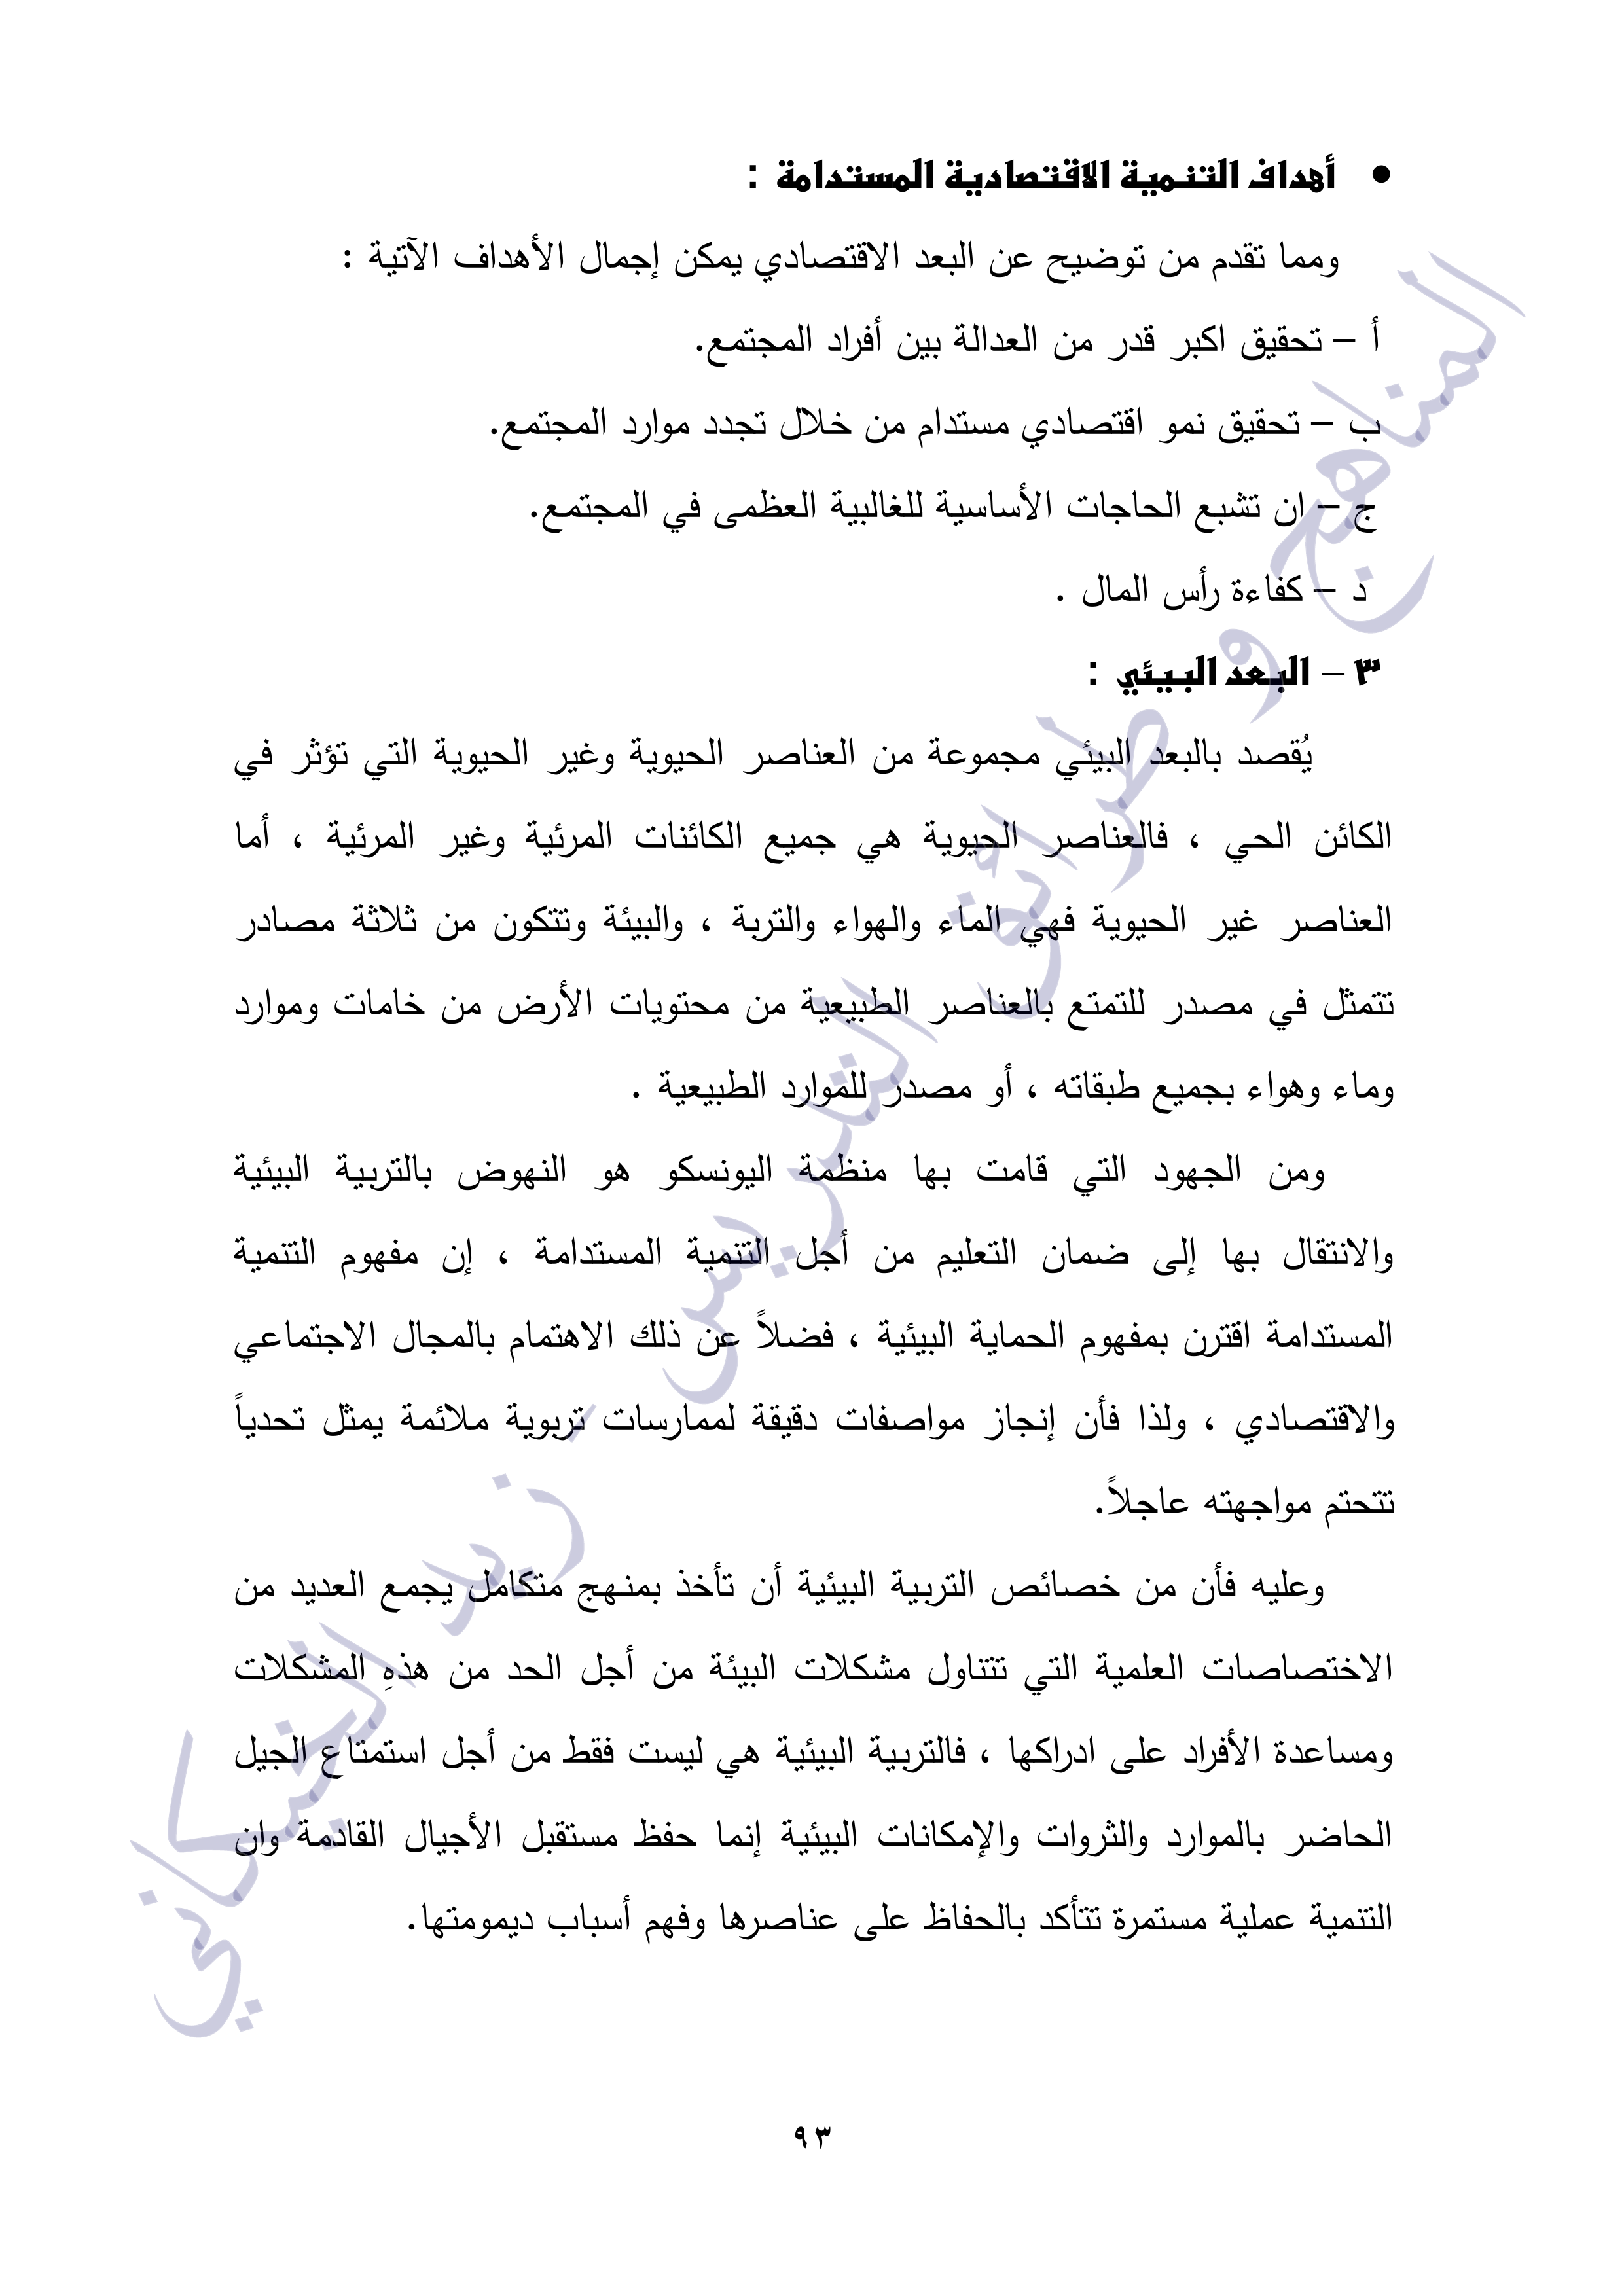 • أهداف التنمية الاقتصادية المستدامة :
ومما تقدم من توضيح عن البعد الاقتصادي يمكن إجمال الأهداف الآتية :
أ – تحقيق اكبر قدر من العدالة بين أفراد المجتمع.
ب – تحقيق نمو اقتصادي مستدام من خلال تجدد موارد المجتمع.
ج – ان تشبع الحاجات الأساسية للغالبية العظمى في المجتمع.
د – كفاءة رأس المال .
٣ – البعد البيئي :
يُقصد بالبعد البيئي مجموعة من العناصر الحيوية وغير الحيوية التي تؤثر في
الكائن الحي ، فالعناصر الحيوية هي جميع الكائنات المرئية وغير المرئية ، أما
العناصر غير الحيوية فهي الماء والهواء والتربة ، والبيئة وتتكون من ثلاثة مصادر
تتمثل في مصدر للتمتع بالعناصر الطبيعية من محتويات الأرض من خامات وموارد
وماء وهواء بجميع طبقاته ، أو مصدر للموارد الطبيعية .
ومن الجهود التي قامت بها منظمة اليونسكو هو النهوض بالتربية البيئية
والانتقال بها إلى ضمان التعليم من أجل التنمية المستدامة ، إن مفهوم التنمية
المستدامة اقترن بمفهوم الحماية البيئية ، فضلاً عن ذلك الاهتمام بالمجال الاجتماعي
والاقتصادي ، ولذا فأن إنجاز مواصفات دقيقة لممارسات تربوية ملائمة يمثل تحدياً
تتحتم مواجهته عاجلاً.
وعليه فأن من خصائص التربية البيئية أن تأخذ بمنهج متكامل يجمع العديد من
الاختصاصات العلمية التي تتناول مشكلات البيئة من أجل الحد من هذهِ المشكلات
ومساعدة الأفراد على ادراكها ، فالتربية البيئية هي ليست فقط من أجل استمتاع الجيل
الحاضر بالموارد والثروات والإمكانات البيئية إنما حفظ مستقبل الأجيال القادمة وان
التنمية عملية مستمرة تتأكد بالحفاظ على عناصرها وفهم أسباب ديمومتها.
المناهج و طرائق التدريس - زيد الخيكاني
٩٣